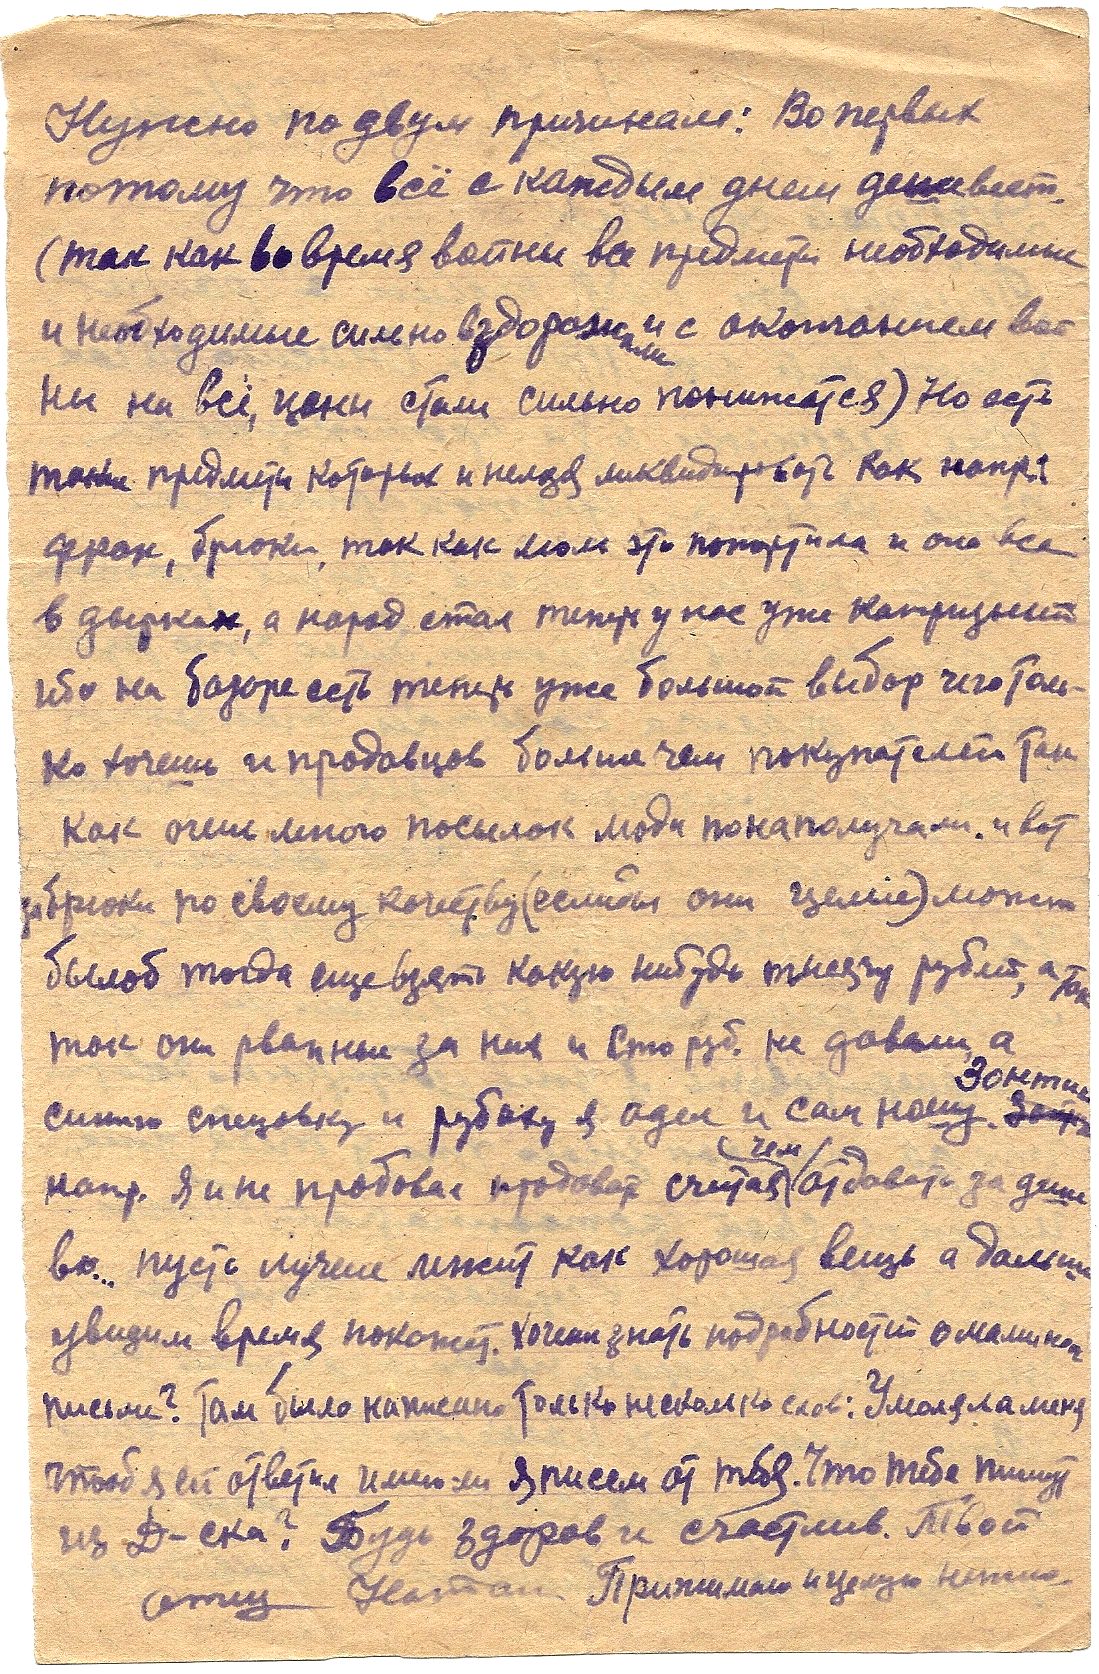 Нужно по двум причинам: Во первых
потому что всё с каждым днем дешевеет.
(так как во время войны все предметы необходимые
и необходимые сильно вздорожали и с окончанием вой
ны на всё, цены стали сильно понижатся) Но есть
таки предметы которых и нельзя ликвидировать как напр:
френч, брюки, так как моль это попортила и оно все
в дырках, а народ стал теперь у нас уже капризный
ибо на базаре есть теперь уже большой выбор чего толь-
ко хочешь и продавцов больше чем покупателей так
как очень много посылок люди понаполучали. и вот
за брюки по своему качеству (еслибы они целые) можно
былоб тогда еще взять какую нибудь тысячу рублей, а так
так они рванные за них и сто руб. не давали, а
синюю спецовку и рубаху я одел и сам ношу. Зонтик
напр. я и не пробовал продовать считая чем отдавать за деше
во... пусть лучше лежит как хорошая вещь а дальше
увидим время покажет. Хочешь знать подробностей о мамином
письме? Там было написано только несколько слов: Умоляла меня
чтоб я ей ответил имею-ли я писем от тебя. Что тебе пишут
из Д-ска? Будь здоров и счастлив. Твой
отец Натан Прижимаю и целую нежно.